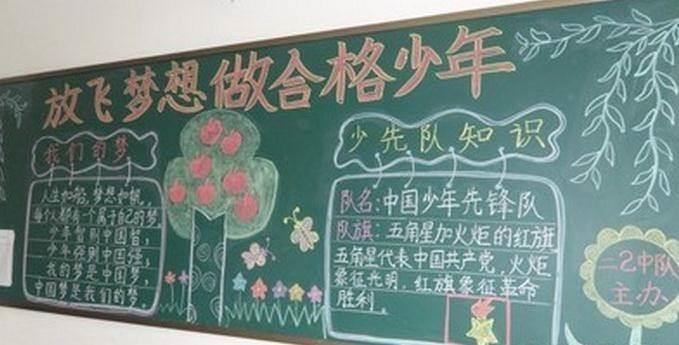 放飞梦想做合格少年
我们的梦
人生如船,梦想如帆。
每个人都有一个属于自己的梦
少年智则中国智,
少年强则中国强,
我的梦是中国梦,
中国梦是我们的梦。
少先队知识
队名:中国少年先锋队
队旗:五角星加火炬的红旗
五角星代表中国共产党,火炬
象征光明,红旗象征革命
胜利。
二乙中队
主办